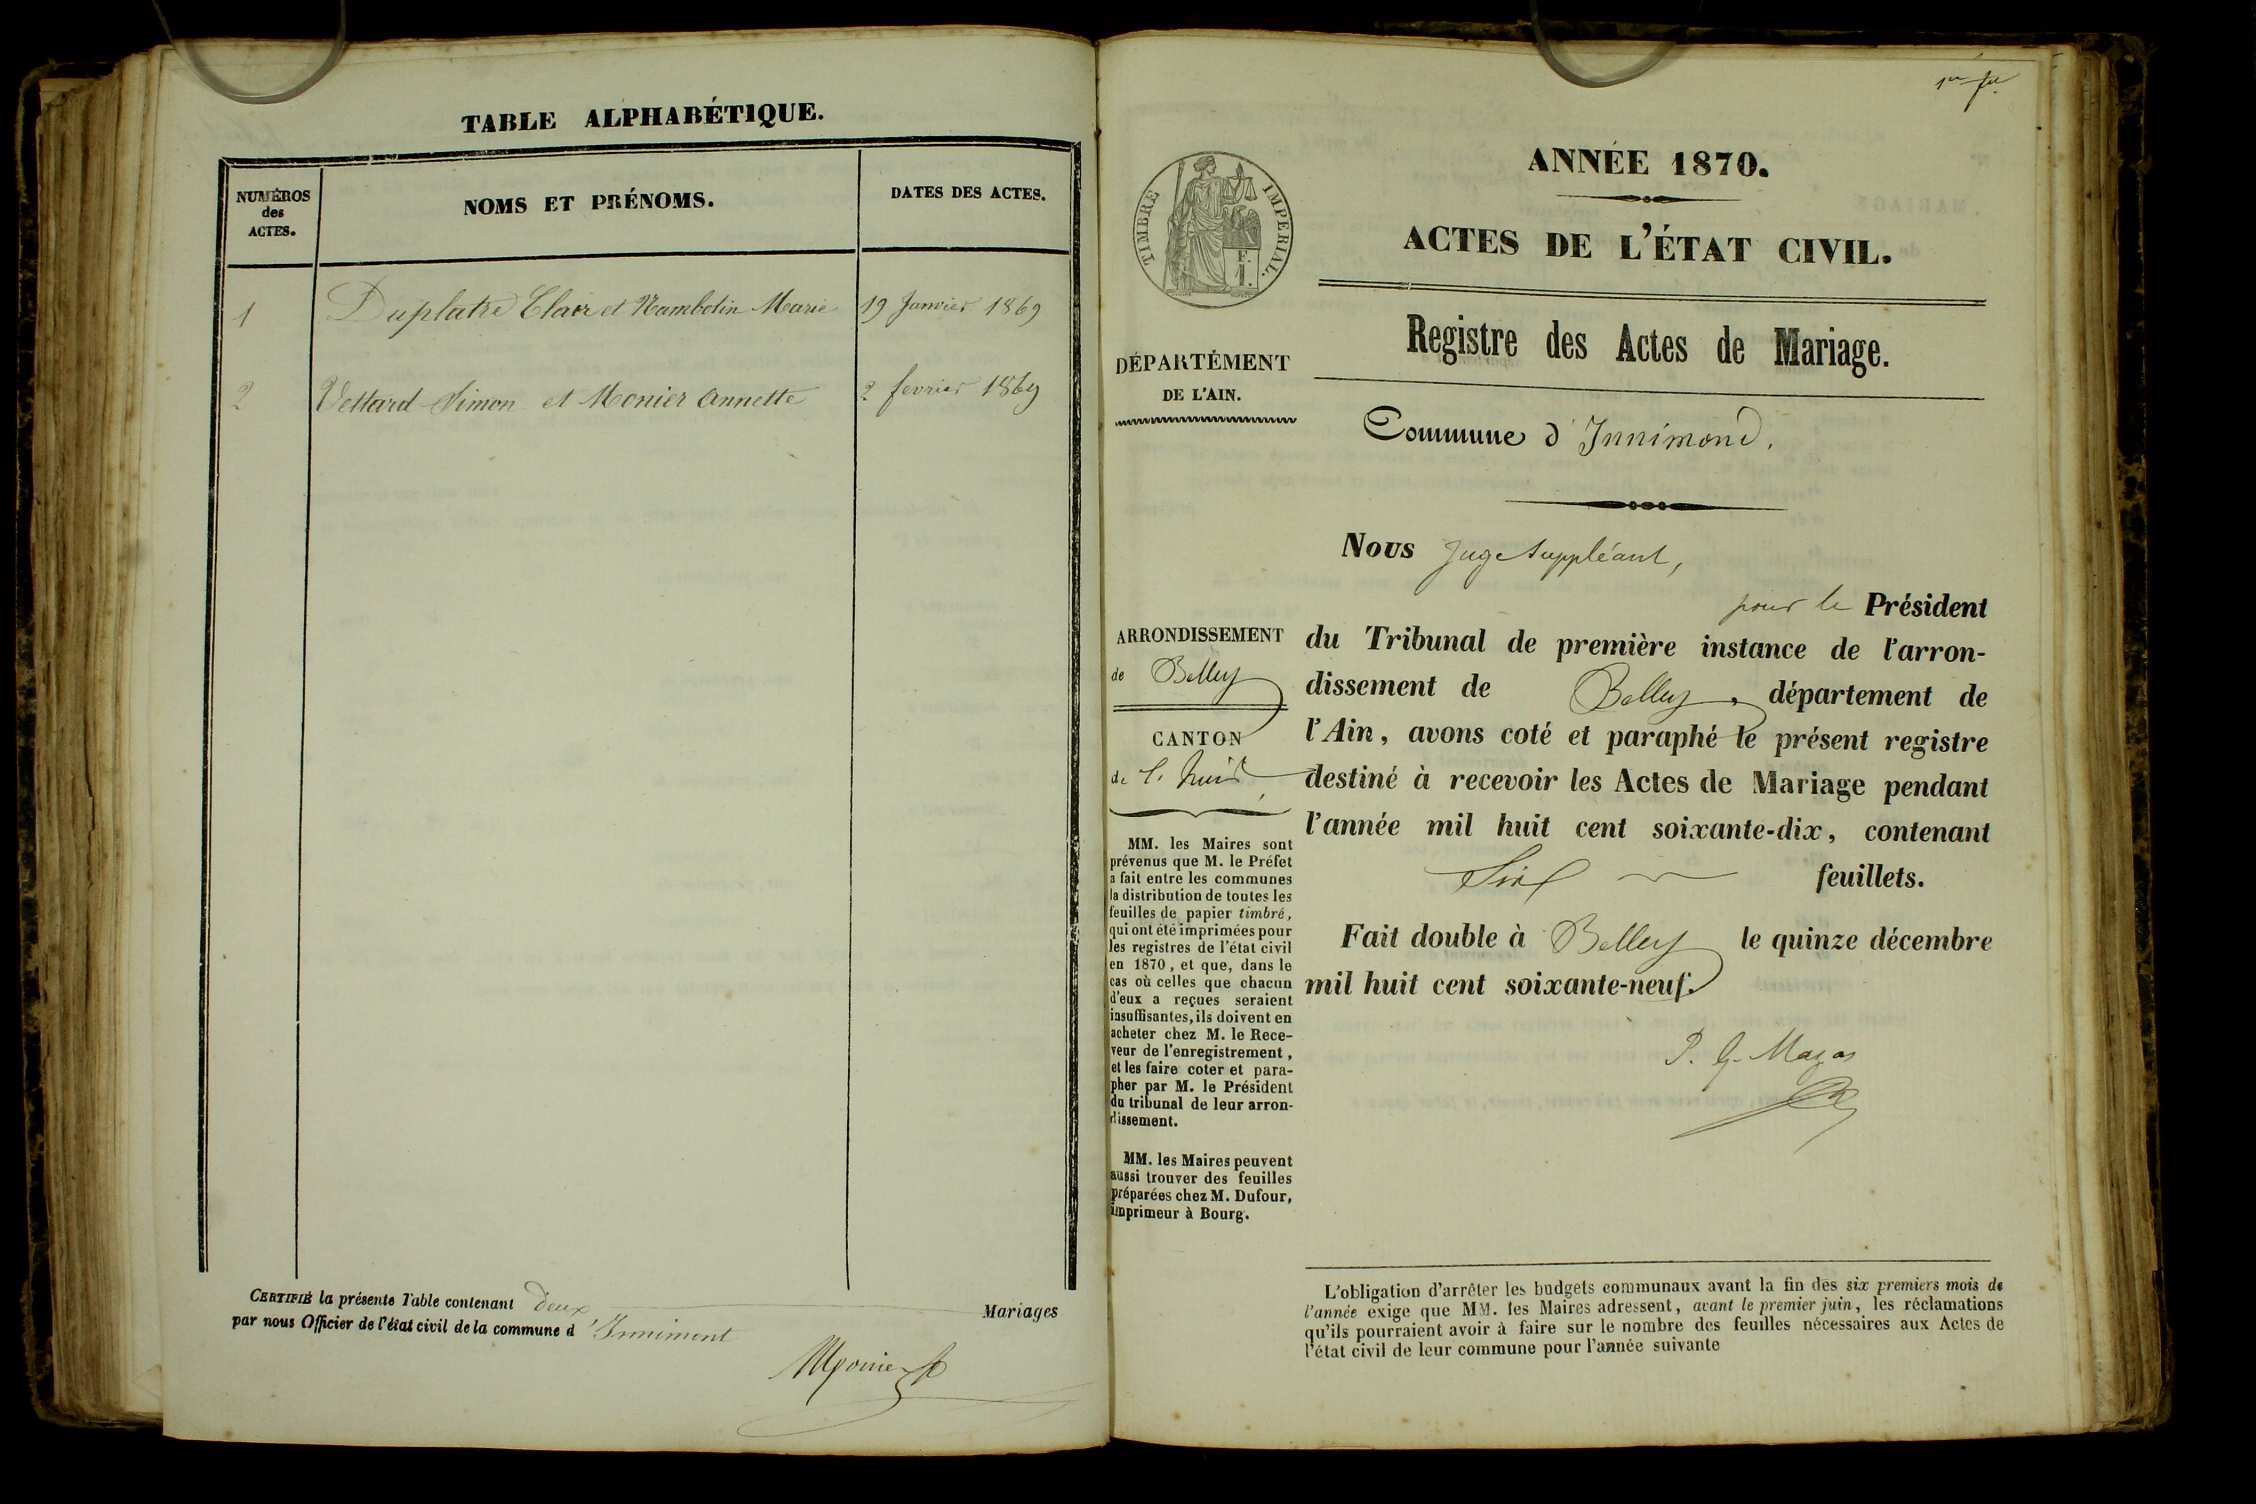 TABLE ALPHABÉTIQUE.
NUMÉROS
des
ACTES.
NOMS ET PRÉNOMS.
DATES DES ACTES.
1 Duplatre Clair et Rambolin Marie 19 Janvier 1869
2 Vettard Simon et Monier Annette 2 fevrier 1869
CERTIFIÉ la présente Table contenant deux Mariages
par nous Officier de l'état civil de la commune d'Innimont
1er f.et
TIMBRE IMPERIAL.
F.
1.
ANNÉE 1870.
ACTES DE L'ÉTAT CIVIL.
Registre des Actes de Mariage.
DÉPARTEMENT
DE L'AIN.
Commune d'Innimond.
ARRONDISSEMENT
de Belley
CANTON
de
MM. les Maires sont
prévenus que M. le Préfet
a fait entre les communes
la distribution de toutes les
feuilles de papier timbré,
qui ont été imprimées pour
les registres de l'état civil
en 1870, et que, dans le
cas où celles que chacun
d'eux a reçues seraient
insuffisantes, ils doivent en
acheter chez M. le Rece-
veur de l'enregistrement,
et les faire coter et para-
pher par M. le Président
du tribunal de leur arron-
dissement.
MM. les Maires peuvent
aussi trouver des feuilles
préparées chez M. Dufour,
imprimeur à Bourg.
Nous Juge Suppléant,
pour le Président
du Tribunal de première instance de l'arron-
dissement de Belley, département de
l'Ain, avons coté et paraphé le présent registre
destiné à recevoir les Actes de Mariage pendant
l'année mil huit cent soixante-dix, contenant
Six feuillets.
Fait double à Belley le quinze décembre
mil huit cent soixante-neuf.
P. G. Mazas
L'obligation d'arrêter les budgets communaux avant la fin des six premiers mois de
l'année exige que MM. les Maires adressent, avant le premier juin, les réclamations
qu'ils pourraient avoir à faire sur le nombre des feuilles nécessaires aux Actes de
l'état civil de leur commune pour l'année suivante